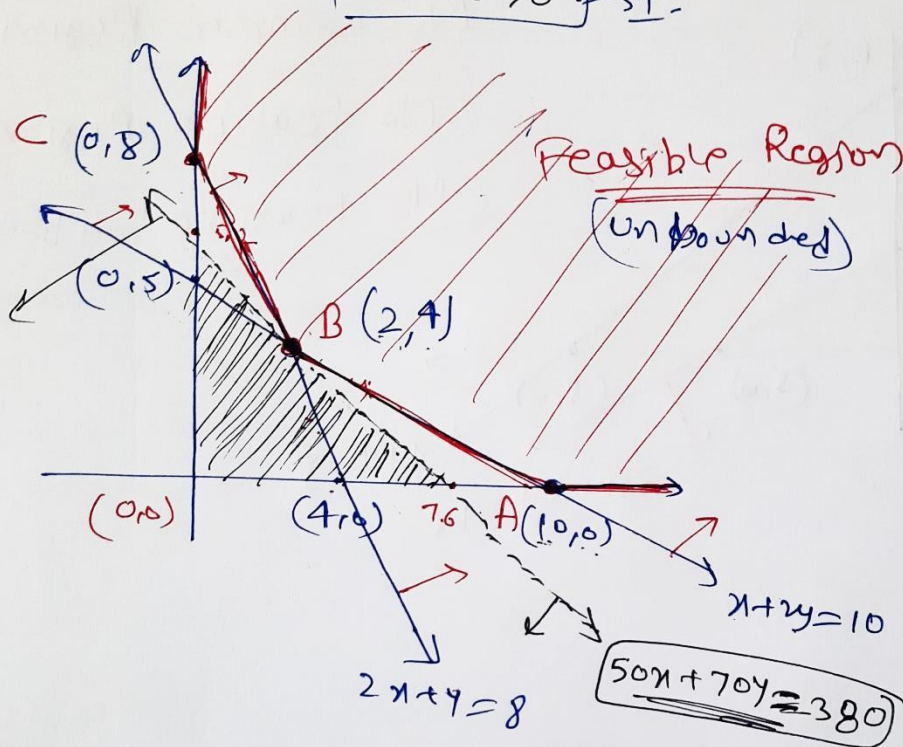 C (0,8)
Feasible Region
(unbounded)
(0,5)
B (2,4)
(0,0)
(4,0)
7.6
A(10,0)
x+2y=10
50x+70y=380
2x+y=8